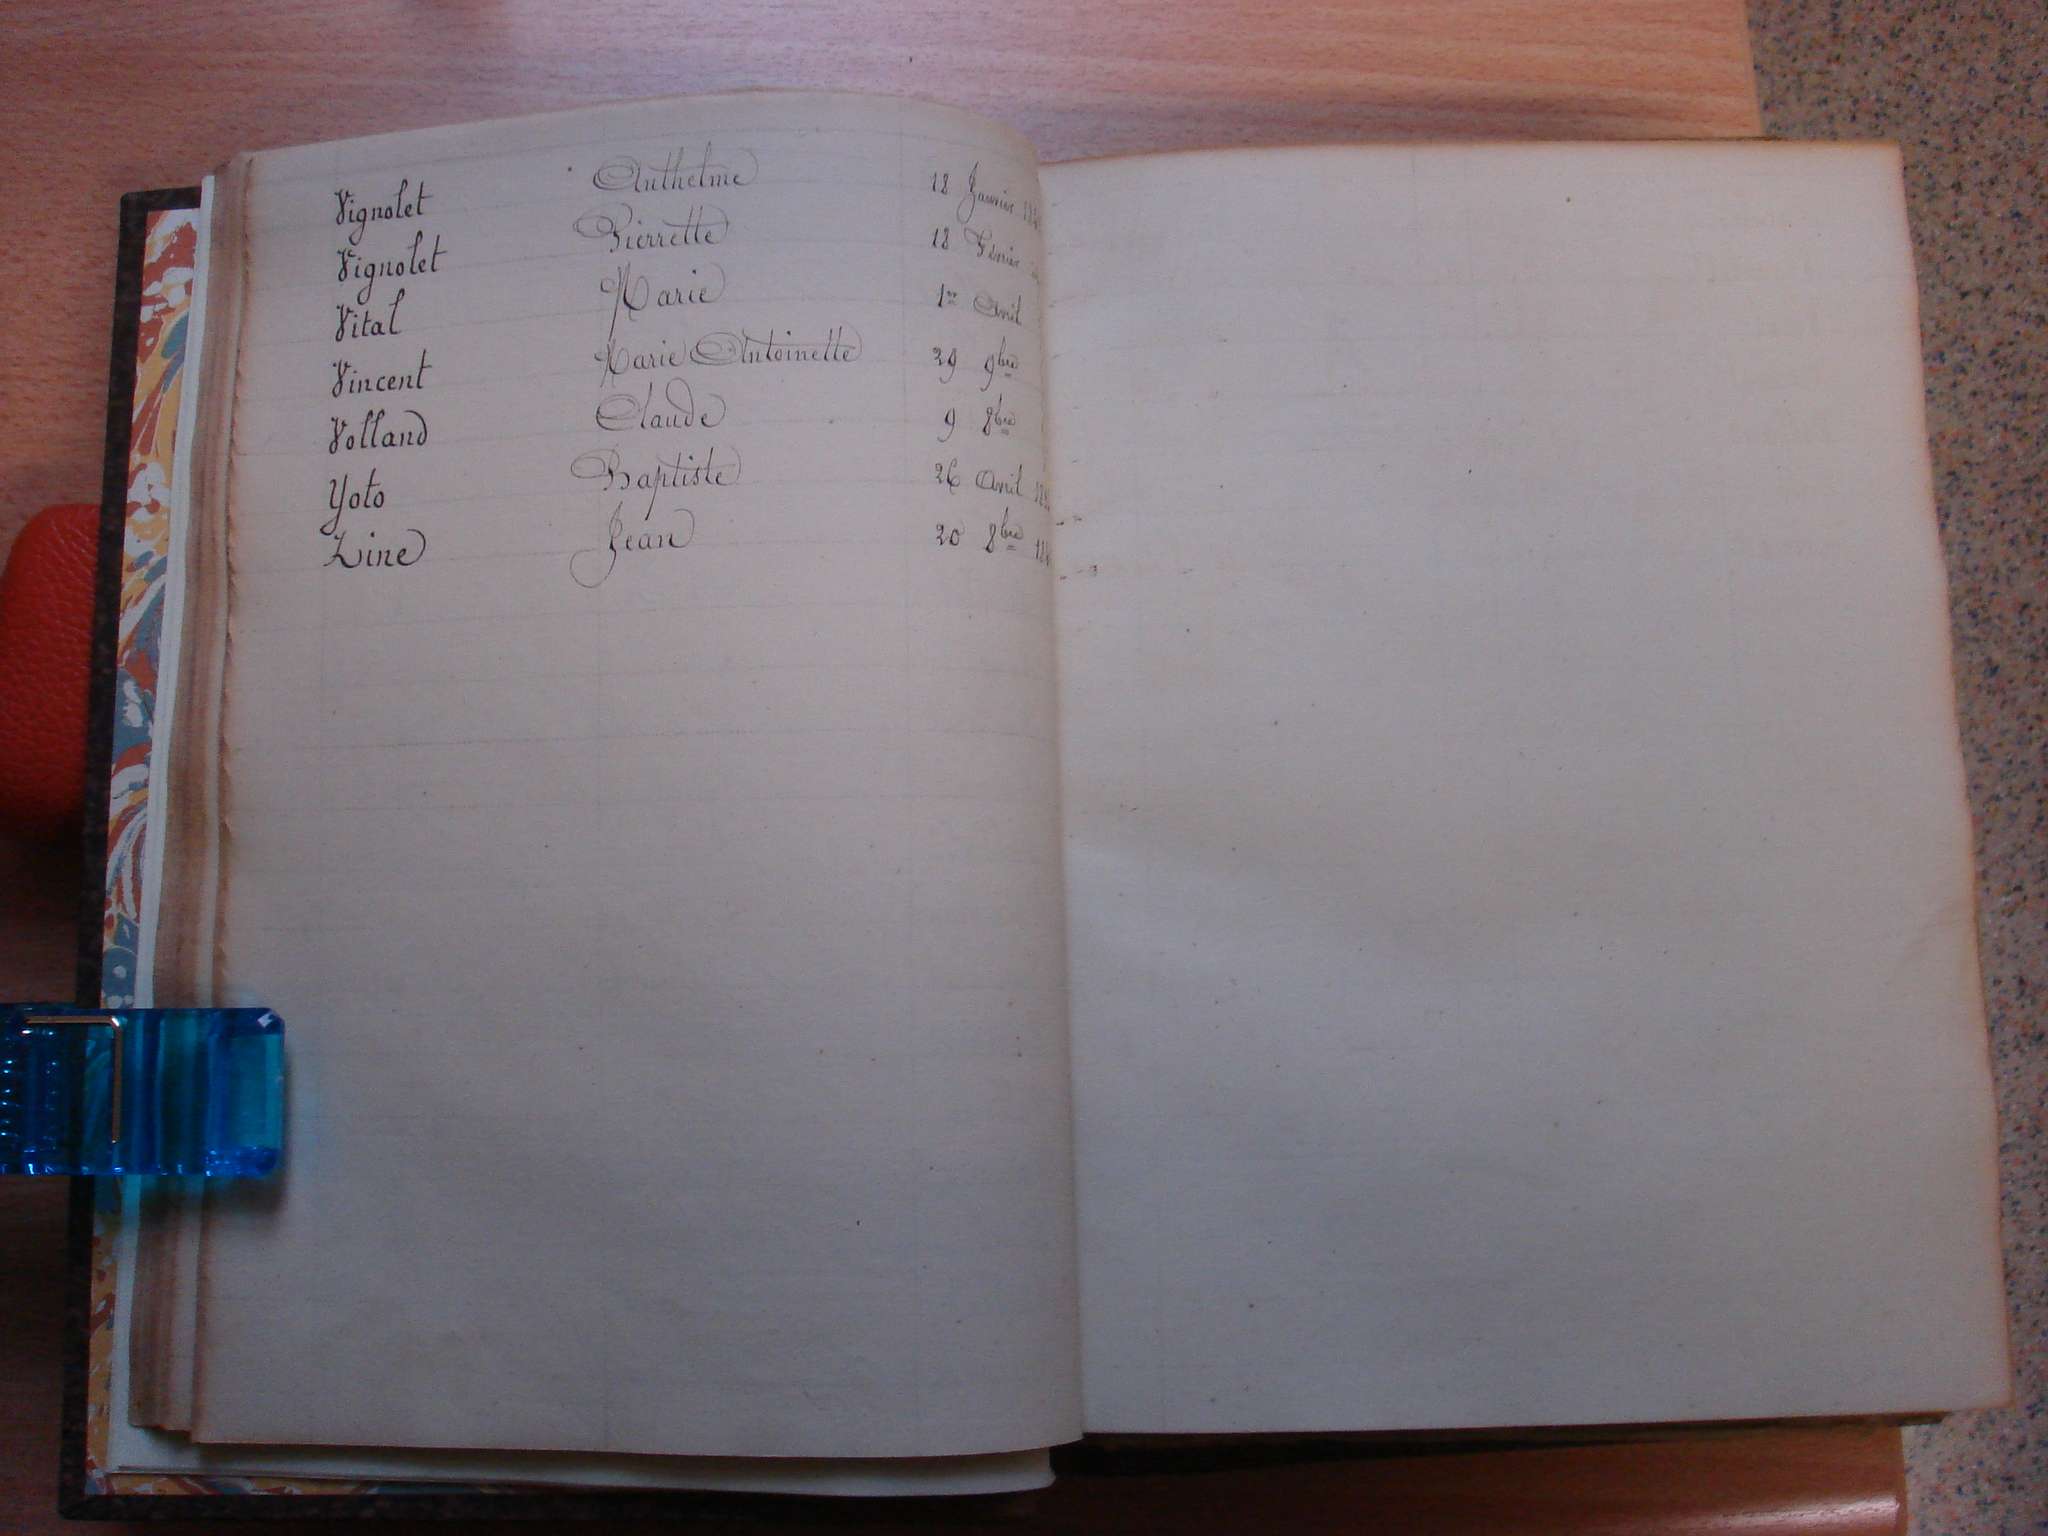 Vignolet Anthelme 18 Janvier
Vignolet Pierrette 18 Février
Vital Marie 1er Avril
Vincent Marie Antoinette 29 9bre
Volland Claude 9 8bre
Yoto Baptiste 26 Avril
Zine Jean 20 8bre